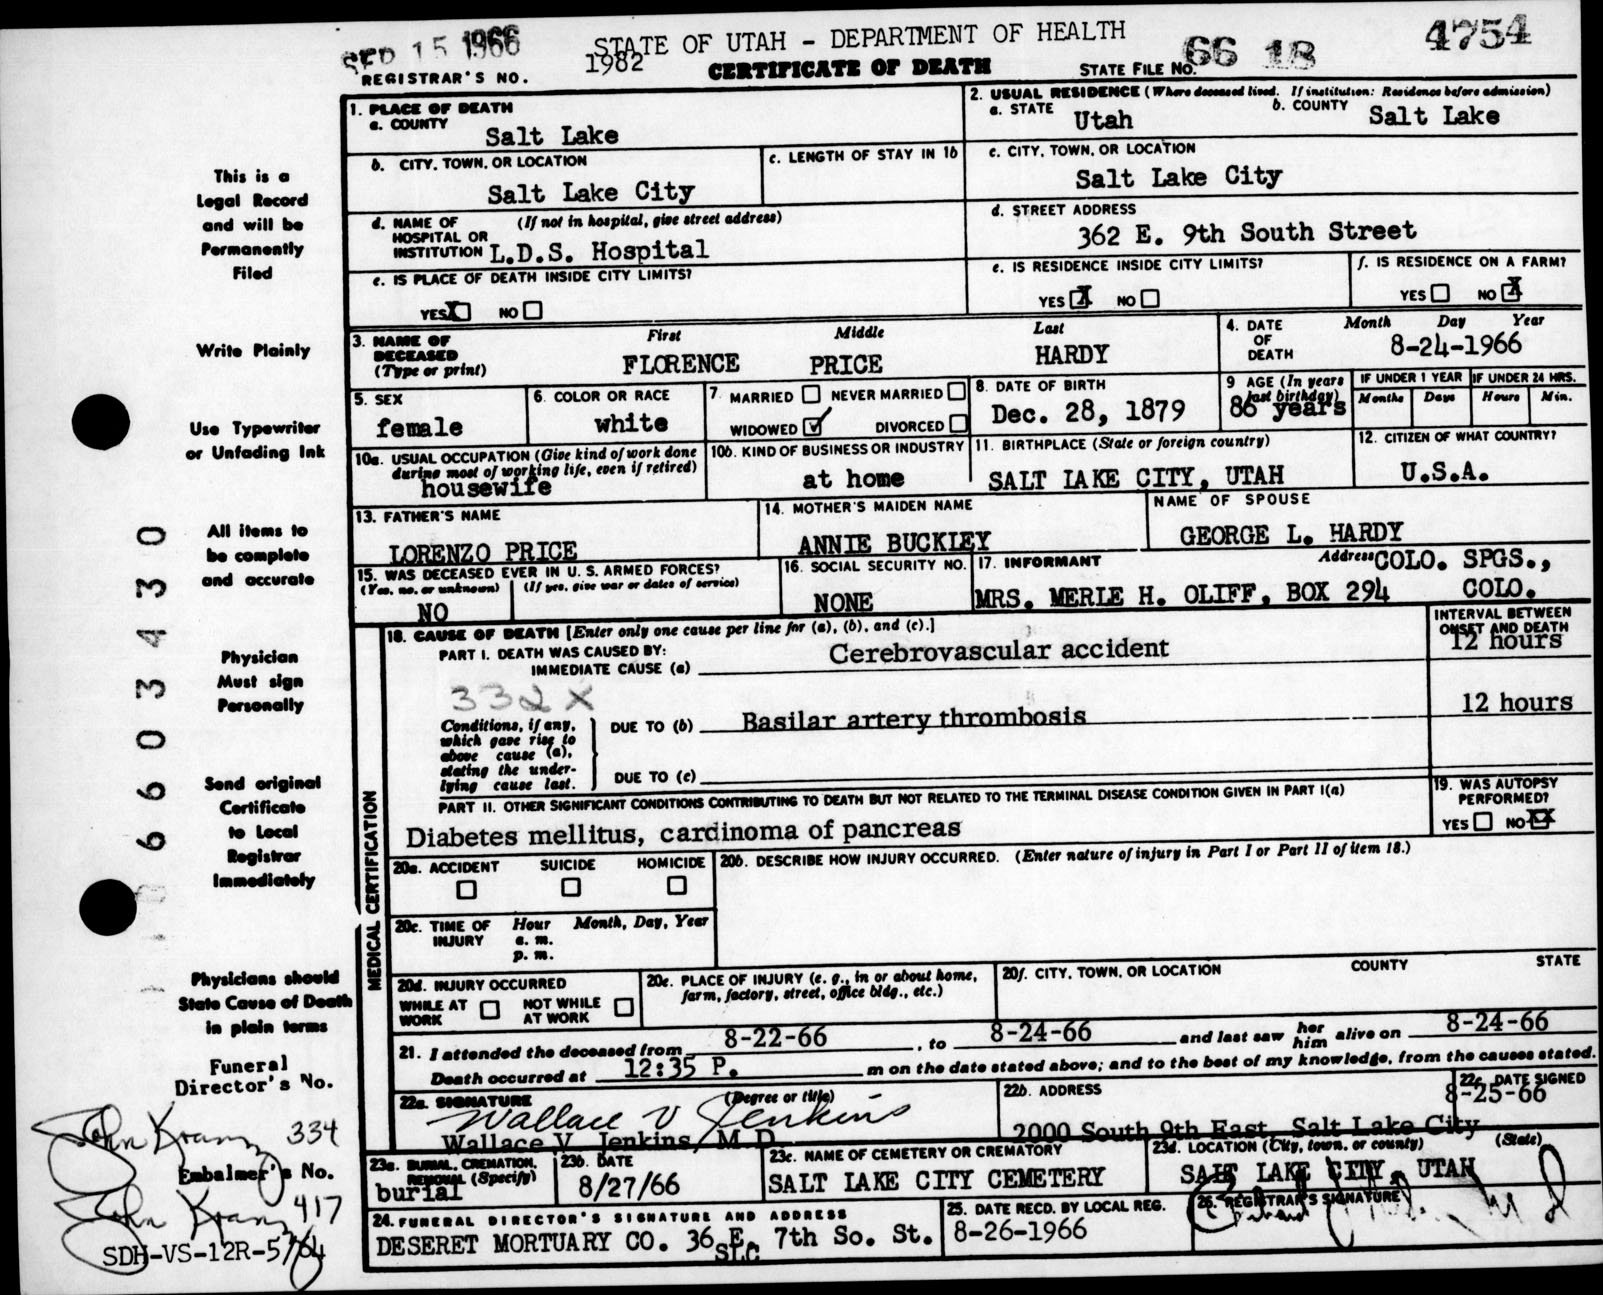 SEP 15 1966
STATE OF UTAH - DEPARTMENT OF HEALTH
4754
REGISTRAR'S NO. 1982
CERTIFICATE OF DEATH
STATE FILE NO. 66 18
This is a
Legal Record
and will be
Permanently
Filed
Write Plainly
Use Typewriter
or Unfading Ink
All items to
be complete
and accurate
Physician
Must sign
Personally
Send original
Certificate
to Local
Registrar
Immediately
Physicians should
State Cause of Death
in plain terms
Funeral
Director's No.
John Krann 334
Embalmer's No.
John Krann 417
SDH-VS-12R-5/64
6 6 0 3 4 3 3 0
1. PLACE OF DEATH
a. COUNTY
Salt Lake
2. USUAL RESIDENCE (Where deceased lived. If institution: Residence before admission)
a. STATE Utah b. COUNTY Salt Lake
b. CITY, TOWN, OR LOCATION
Salt Lake City
c. LENGTH OF STAY IN 1b
c. CITY, TOWN, OR LOCATION
Salt Lake City
d. NAME OF (If not in hospital, give street address)
HOSPITAL OR
INSTITUTION L.D.S. Hospital
d. STREET ADDRESS
362 E. 9th South Street
e. IS PLACE OF DEATH INSIDE CITY LIMITS?
YES X NO
e. IS RESIDENCE INSIDE CITY LIMITS?
YES X NO
f. IS RESIDENCE ON A FARM?
YES NO X
3. NAME OF
DECEASED
(Type or print)
First Middle Last
FLORENCE PRICE HARDY
4. DATE
OF
DEATH
Month Day Year
8-24-1966
5. SEX
female
6. COLOR OR RACE
white
7. MARRIED NEVER MARRIED
WIDOWED ✓ DIVORCED
8. DATE OF BIRTH
Dec. 28, 1879
9 AGE (In years
last birthday)
86 years
IF UNDER 1 YEAR IF UNDER 24 HRS.
Months Days Hours Min.
10a. USUAL OCCUPATION (Give kind of work done
during most of working life, even if retired)
housewife
10b. KIND OF BUSINESS OR INDUSTRY
at home
11. BIRTHPLACE (State or foreign country)
SALT LAKE CITY, UTAH
12. CITIZEN OF WHAT COUNTRY?
U.S.A.
13. FATHER'S NAME
LORENZO PRICE
14. MOTHER'S MAIDEN NAME
ANNIE BUCKLEY
NAME OF SPOUSE
GEORGE L. HARDY
15. WAS DECEASED EVER IN U. S. ARMED FORCES?
(Yes, no, or unknown) (If yes, give war or dates of service)
NO
16. SOCIAL SECURITY NO.
NONE
17. INFORMANT Address COLO. SPGS.,
MRS. MERLE H. OLIFF, BOX 294 COLO.
MEDICAL CERTIFICATION
18. CAUSE OF DEATH [Enter only one cause per line for (a), (b), and (c).]
INTERVAL BETWEEN
ONSET AND DEATH
PART I. DEATH WAS CAUSED BY:
IMMEDIATE CAUSE (a) Cerebrovascular accident 12 hours
332X
Conditions, if any,
which gave rise to
above cause (a),
stating the under-
lying cause last.
DUE TO (b) Basilar artery thrombosis 12 hours
DUE TO (c)
PART II. OTHER SIGNIFICANT CONDITIONS CONTRIBUTING TO DEATH BUT NOT RELATED TO THE TERMINAL DISEASE CONDITION GIVEN IN PART I(a)
Diabetes mellitus, carcinoma of pancreas
19. WAS AUTOPSY
PERFORMED?
YES NO X
20a. ACCIDENT SUICIDE HOMICIDE
20b. DESCRIBE HOW INJURY OCCURRED. (Enter nature of injury in Part I or Part II of item 18.)
20c. TIME OF Hour Month, Day, Year
INJURY a. m.
p. m.
20d. INJURY OCCURRED
WHILE AT
WORK
NOT WHILE
AT WORK
20e. PLACE OF INJURY (e. g., in or about home,
farm, factory, street, office bldg., etc.)
20f. CITY, TOWN, OR LOCATION COUNTY STATE
21. I attended the deceased from 8-22-66, to 8-24-66 and last saw her him alive on 8-24-66
Death occurred at 12:35 P. m on the date stated above; and to the best of my knowledge, from the causes stated.
22a. SIGNATURE (Degree or title)
Wallace V Jenkins
Wallace V. Jenkins, M.D.
22b. ADDRESS
2000 South 9th East, Salt Lake City
22c. DATE SIGNED
8-25-66
23a. BURIAL, CREMATION,
REMOVAL (Specify)
burial
23b. DATE
8/27/66
23c. NAME OF CEMETERY OR CREMATORY
SALT LAKE CITY CEMETERY
23d. LOCATION (City, town, or county) (State)
SALT LAKE CITY, UTAH
24. FUNERAL DIRECTOR'S SIGNATURE AND ADDRESS
DESERET MORTUARY CO. 36 E. 7th So. St.
SLC
25. DATE RECD. BY LOCAL REG.
8-26-1966
26. REGISTRAR'S SIGNATURE